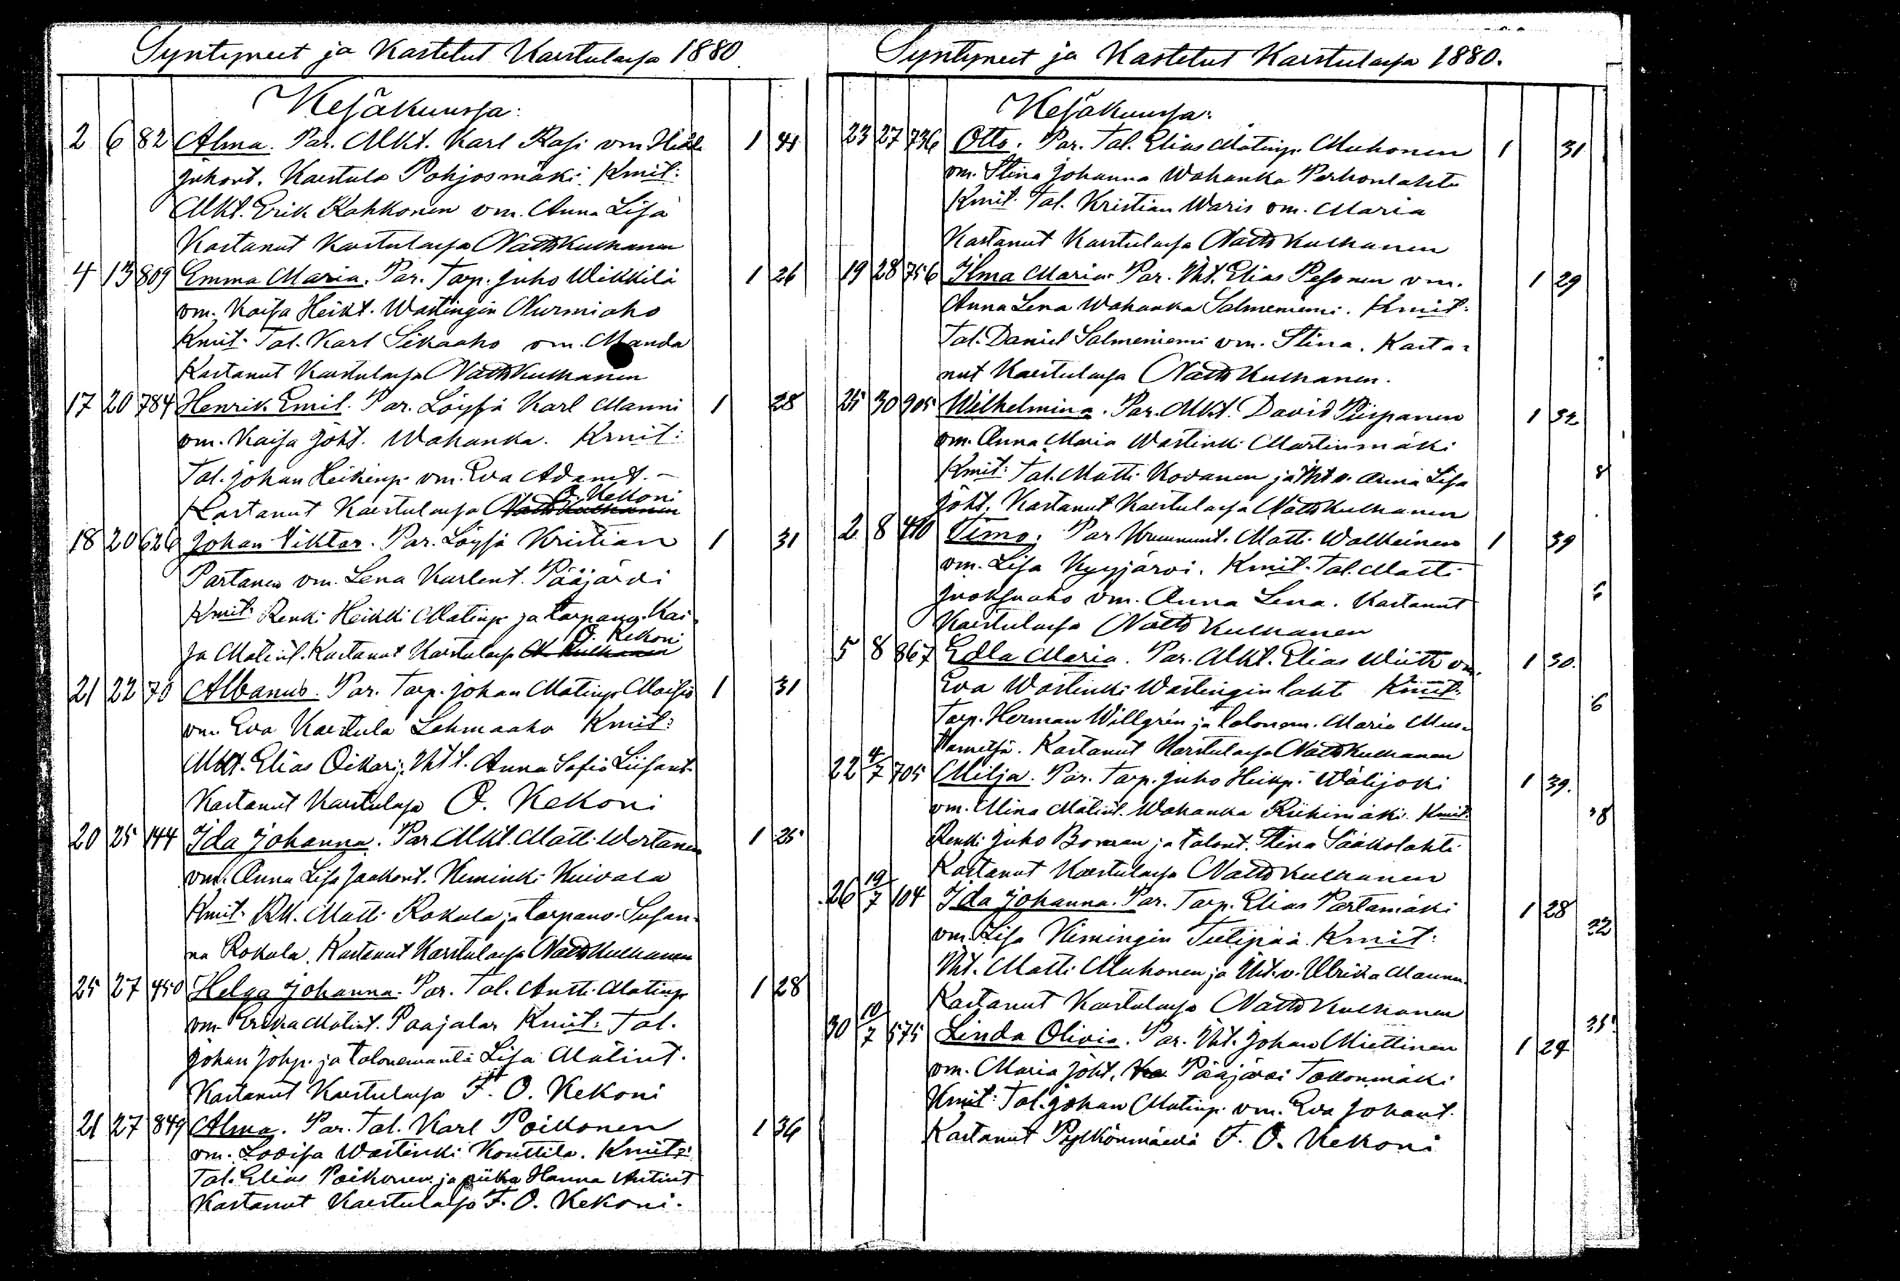 Syntyneet ja Kastetut Karstulassa 1880
Kesäkuussa:
2 6 82 Alma. Par. Mkt. Karl Rasi vm. 1 41
Juhont. Karstula Pohjosmäki. Kmit:
Mkt. Erik Kahkonen vm. Anna Lisa
Kastanut Karstulassa Natts Kulhanen
4 13 809 Emma Maria. Par. Torp. Juho Wikkilä 1 26
vm. Kaisa Heikt. Wastingin Nurmiaho
Kmit. Tal. Karl Sikaaho vm. Manda
Kastanut Karstulassa Natts Kulhanen
17 20 784 Henrik Emil. Par. Löysä Karl Manni 1 28
vm. Kaisa Joht. Wahanka. Kmit:
Tal. Johan Heikinp. vm. Eva Adamt.
O. Kekoni
Kastanut Karstulassa Natts Kulhanen
18 20 626 Johan Viktor. Par. Löysä Kristian 1 31
Partanen vm. Lena Karlent. Pääjärvi
Kmit: Renki Heikki Matinp. ja torpanp. Kai-
O. Kekoni
sa Matint. Kastanut Karstulassa N. Kulhanen
21 22 70 Albanus. Par. Torp. Johan Matinp. 1 31
vm. Eva Karstula Lehmaaho Kmit:
Mkt. Elias Oikari, Iht t. Anna Sofia Liisant.
Kastanut Karstulassa O. Kekoni
20 25 144 Ida Johanna. Par. Mkt. Matti Wertanen 1 25
vm. Anna Lisa Jaakont. Kiminki Kuivala
Kmit. Matti Rokala ja torpanv. Susan-
na Rokala. Kastanut Karstulassa Natts Kulhanen
25 27 450 Helga Johanna. Par. Tal. Antti Matinp. 1 28
vm. Erika Matint. Paajalar Kmit: Tal.
Johan Johp. ja talonemäntä Lisa Matint.
Kastanut Karstulassa F. O. Kekoni
21 27 849 Alma. Par. Tal. Karl Poikonen 1 36
vm. Lovisa Wastinki Konttila. Kmit:
Tal. Elias Poikonen ja piika Hanna Antint
Kastanut Karstulassa F. O. Kekoni.
Syntyneet ja Kastetut Karstulassa 1880.
Kesäkuussa:
23 27 736 Otto. Par. Tal. Elias Matinp. Muhonen 1 31
vm. Stina Johanna Wahanka Perhonlahti
Kmit. Tal. Kristian Waris vm. Maria
Kastanut Karstulassa Natts Kulhanen
19 28 756 Ilma Maria. Par. Iht. Elias Pesonen vm. 1 29
Anna Lena Wahanka Salmeniemi. Kmit.
Tal. Daniel Salmeniemi vm. Stina. Kasta-
nut Karstulassa Natts Kulhanen.
25 30 905 Wilhelmina. Par. Mkt. David Piispanen 1 32
vm. Anna Maria Wastinki Martinmäki
Kmit: Tal. Matti Kovanen ja Iht v. Anna Lisa
Joht. Kastanut Karstulassa Natts Kulhanen
2 8 410 Timo. Par. Matti Walkeinen 1 39
vm. Lisa Kyyjärvi. Kmit. Tal. Matti
vm. Anna Lena. Kastanut
Karstulassa Natts Kulhanen
5 8 867 Edla Maria. Par. Mkt. Elias vm. 1 30.
Eva Wastinki Wastingin laht Kmit.
Torp. Herman Willgrén ja talonem. Maria Mus-
Kastanut Karstulassa Natts Kulhanen
22 4/7 705 Milja. Par. Torp. Juho Heikp. Wälijoki 1 39.
vm. Mina Matint. Wahanka Riihimäki. Kmit.
Renki Juho Boman ja talont. Stina Sääkslahti
Kastanut Karstulassa Natts Kulhanen
26 10/7 104 Ida Johanna. Par. Torp. Elias Partamäki 1 28
vm. Lisa Kimingin Kmit:
Iht. Matti Muhonen ja Iht. v. Ulrika
Kastanut Karstulassa Natts Kulhanen
30 10/7 575 Linda Olivia. Par. Iht. Johan Miettinen 1 24
vm. Maria Joht. Pääjärvi
Kmit: Tal. Johan Matinp. vm. Eva Johant.
Kastanut Pylkönmäellä F. O. Kekoni